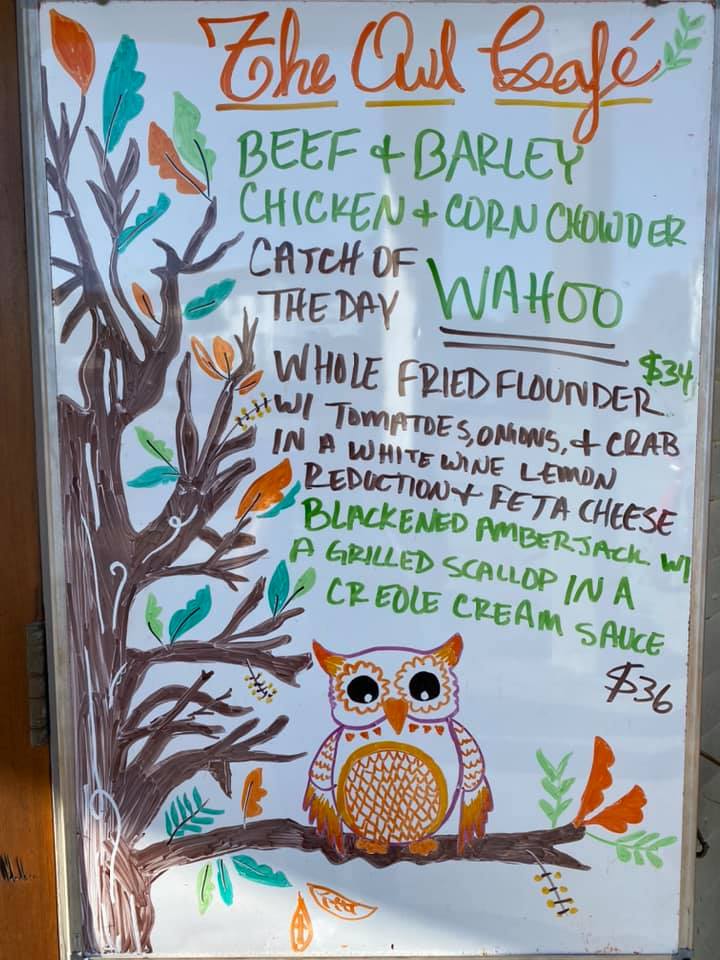 The Owl Café
BEEF + BARLEY
CHICKEN + CORN CHOWDER
CATCH OF
THE DAY WAHOO
WHOLE FRIED FLOUNDER $34
W/ TOMATOES, ONIONS, + CRAB
IN A WHITE WINE LEMON
REDUCTION + FETA CHEESE
BLACKENED AMBERJACK W/
A GRILLED SCALLOP IN A
CREOLE CREAM SAUCE
$36